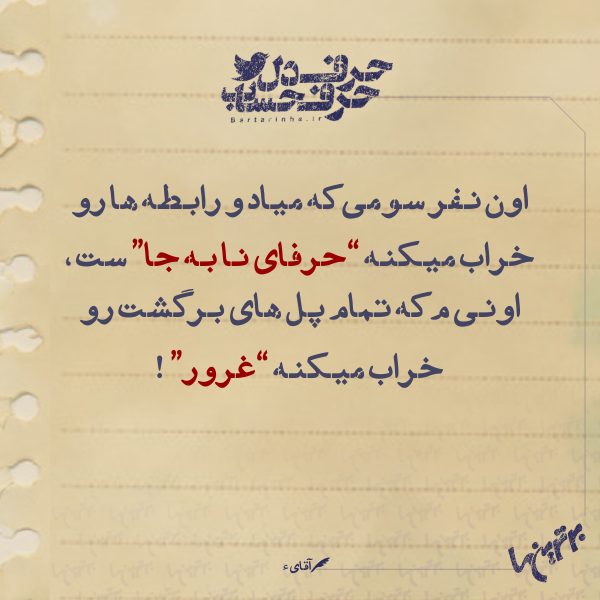 حرف دل
حرف حساب
Bartarinha.ir
اون نفر سومی که میاد و رابطه ها رو
خراب میکنه “حرفای نا به جا” ست،
اونی م که تمام پل های برگشت رو
خراب میکنه “غرور” !
آقای ء
برترین ها